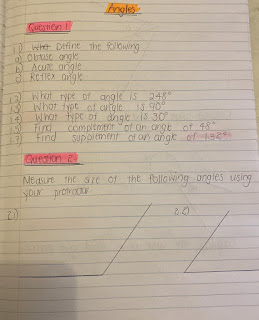 Angles
Question 1
1.1) Define the following
a) Obtuse angle
b) Acute angle
c) Reflex angle
1.2) What type of angle is 248°
1.3) What type of angle is 90°
1.4) What type of angle is 30°
1.5) Find complement of an angle of 48°
1.7) Find supplement of an angle of
Question 2
Measure the size of the following angles using
your protractor
2.1) 2.2)